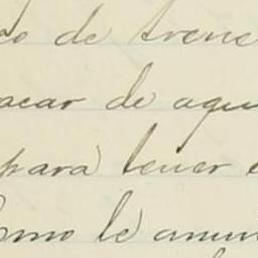 co de trene
acar de aqu
para tener e
como le anun